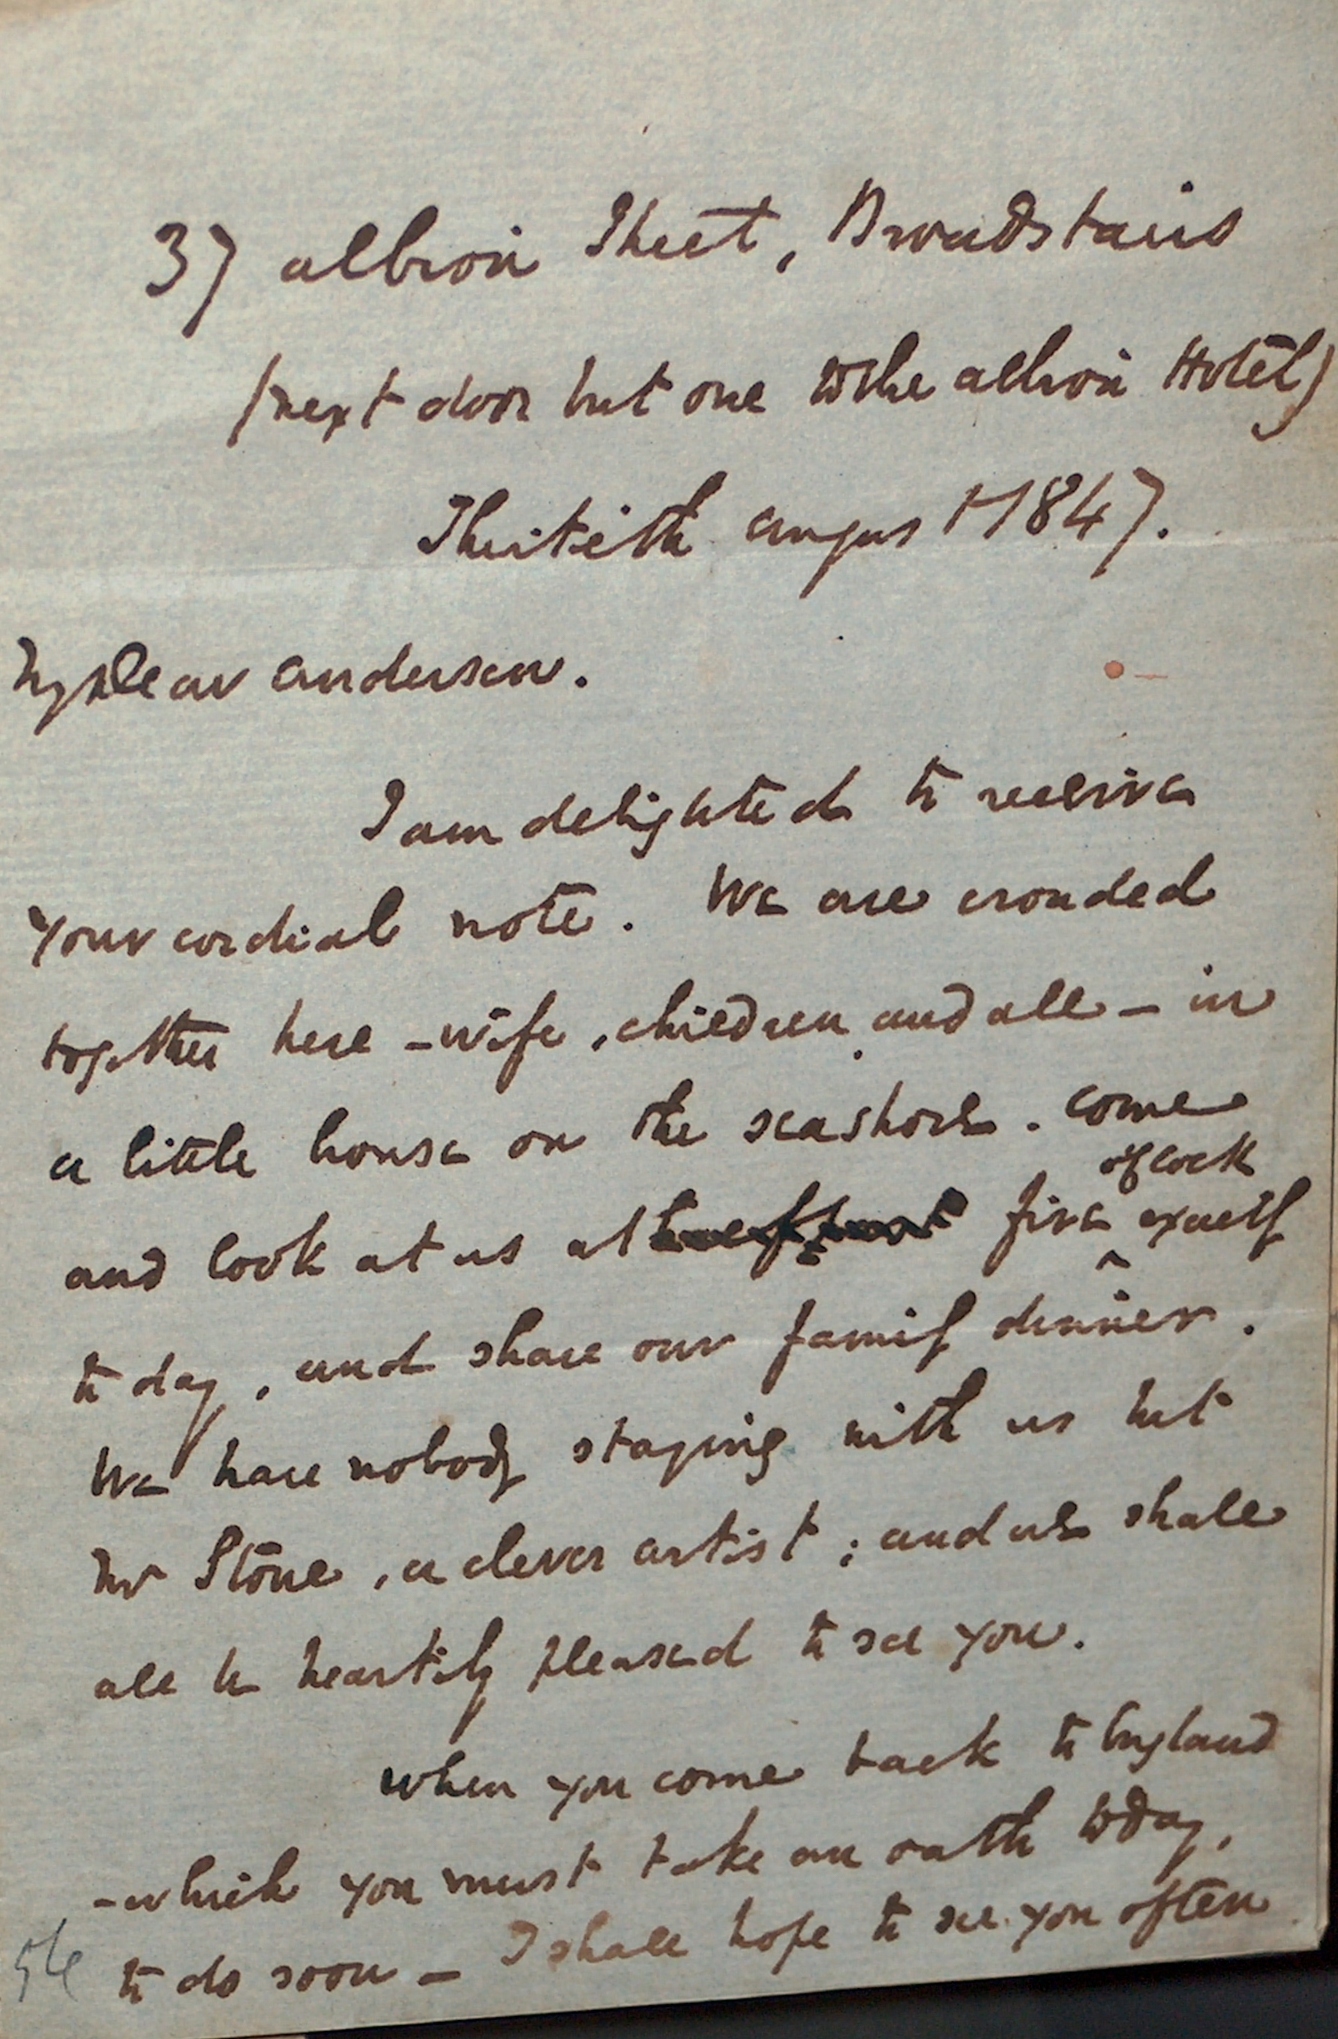 37 Albion Street, Broadstairs
(next door but one to the Albion Hotel)
Thirtieth August 1847.
My dear Andersen.
I am delighted to receive
your cordial note. We are crouded
together here – wife, children and all – in
a little house on the seashore. Come
o'Clock
and look at us at five ^ exactly
to day, and share our family dinner.
We have nobody staying with us but
Mr Stone, a clever artist; and we shall
all be heartily pleased to see you.
When you come back to England
– which you must take an oath today,
to do soon – I shall hope to see you often